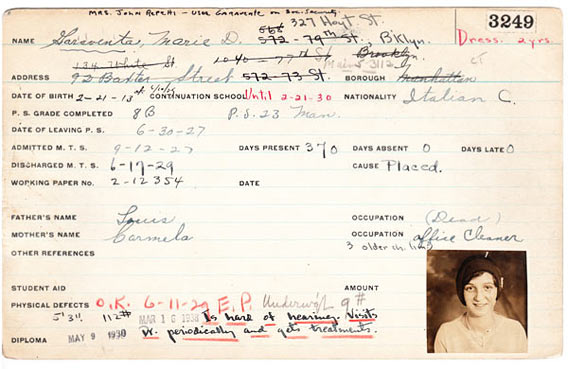 MRS. JOHN REPETTI - USE Garavente on Soc. Security.
568 327 Hoyt St.
3249
NAME Garaventa, Marie D. 572 - 79th St. B'klyn. Dress. 2 yrs.
134 White St 1040 - 77th St. Brooklyn
Main 5 3112
ADDRESS 92 Baxter Street 572-73 St. BOROUGH Manhattan
DATE OF BIRTH 2-21-13 CONTINUATION SCHOOL Until 2-21-30 NATIONALITY Italian C.
P. S. GRADE COMPLETED 8B P.S. 23 Man.
DATE OF LEAVING P. S. 6-30-27
ADMITTED M. T. S. 9-12-27 DAYS PRESENT 370 DAYS ABSENT 0 DAYS LATE 0
DISCHARGED M. T. S. 6-17-29 CAUSE Placed.
WORKING PAPER NO. 2-12354 DATE
FATHER'S NAME Louis OCCUPATION (Dead)
MOTHER'S NAME Carmela OCCUPATION Office Cleaner
OTHER REFERENCES 3 older ch.
STUDENT AID AMOUNT
PHYSICAL DEFECTS O.K. 6-11-29 E.P. Underwgt. 9#
5'3" 112# MAR 18 1930 Is hard of hearing. Visits
Dr. periodically and gets treatments.
DIPLOMA MAY 9 1930